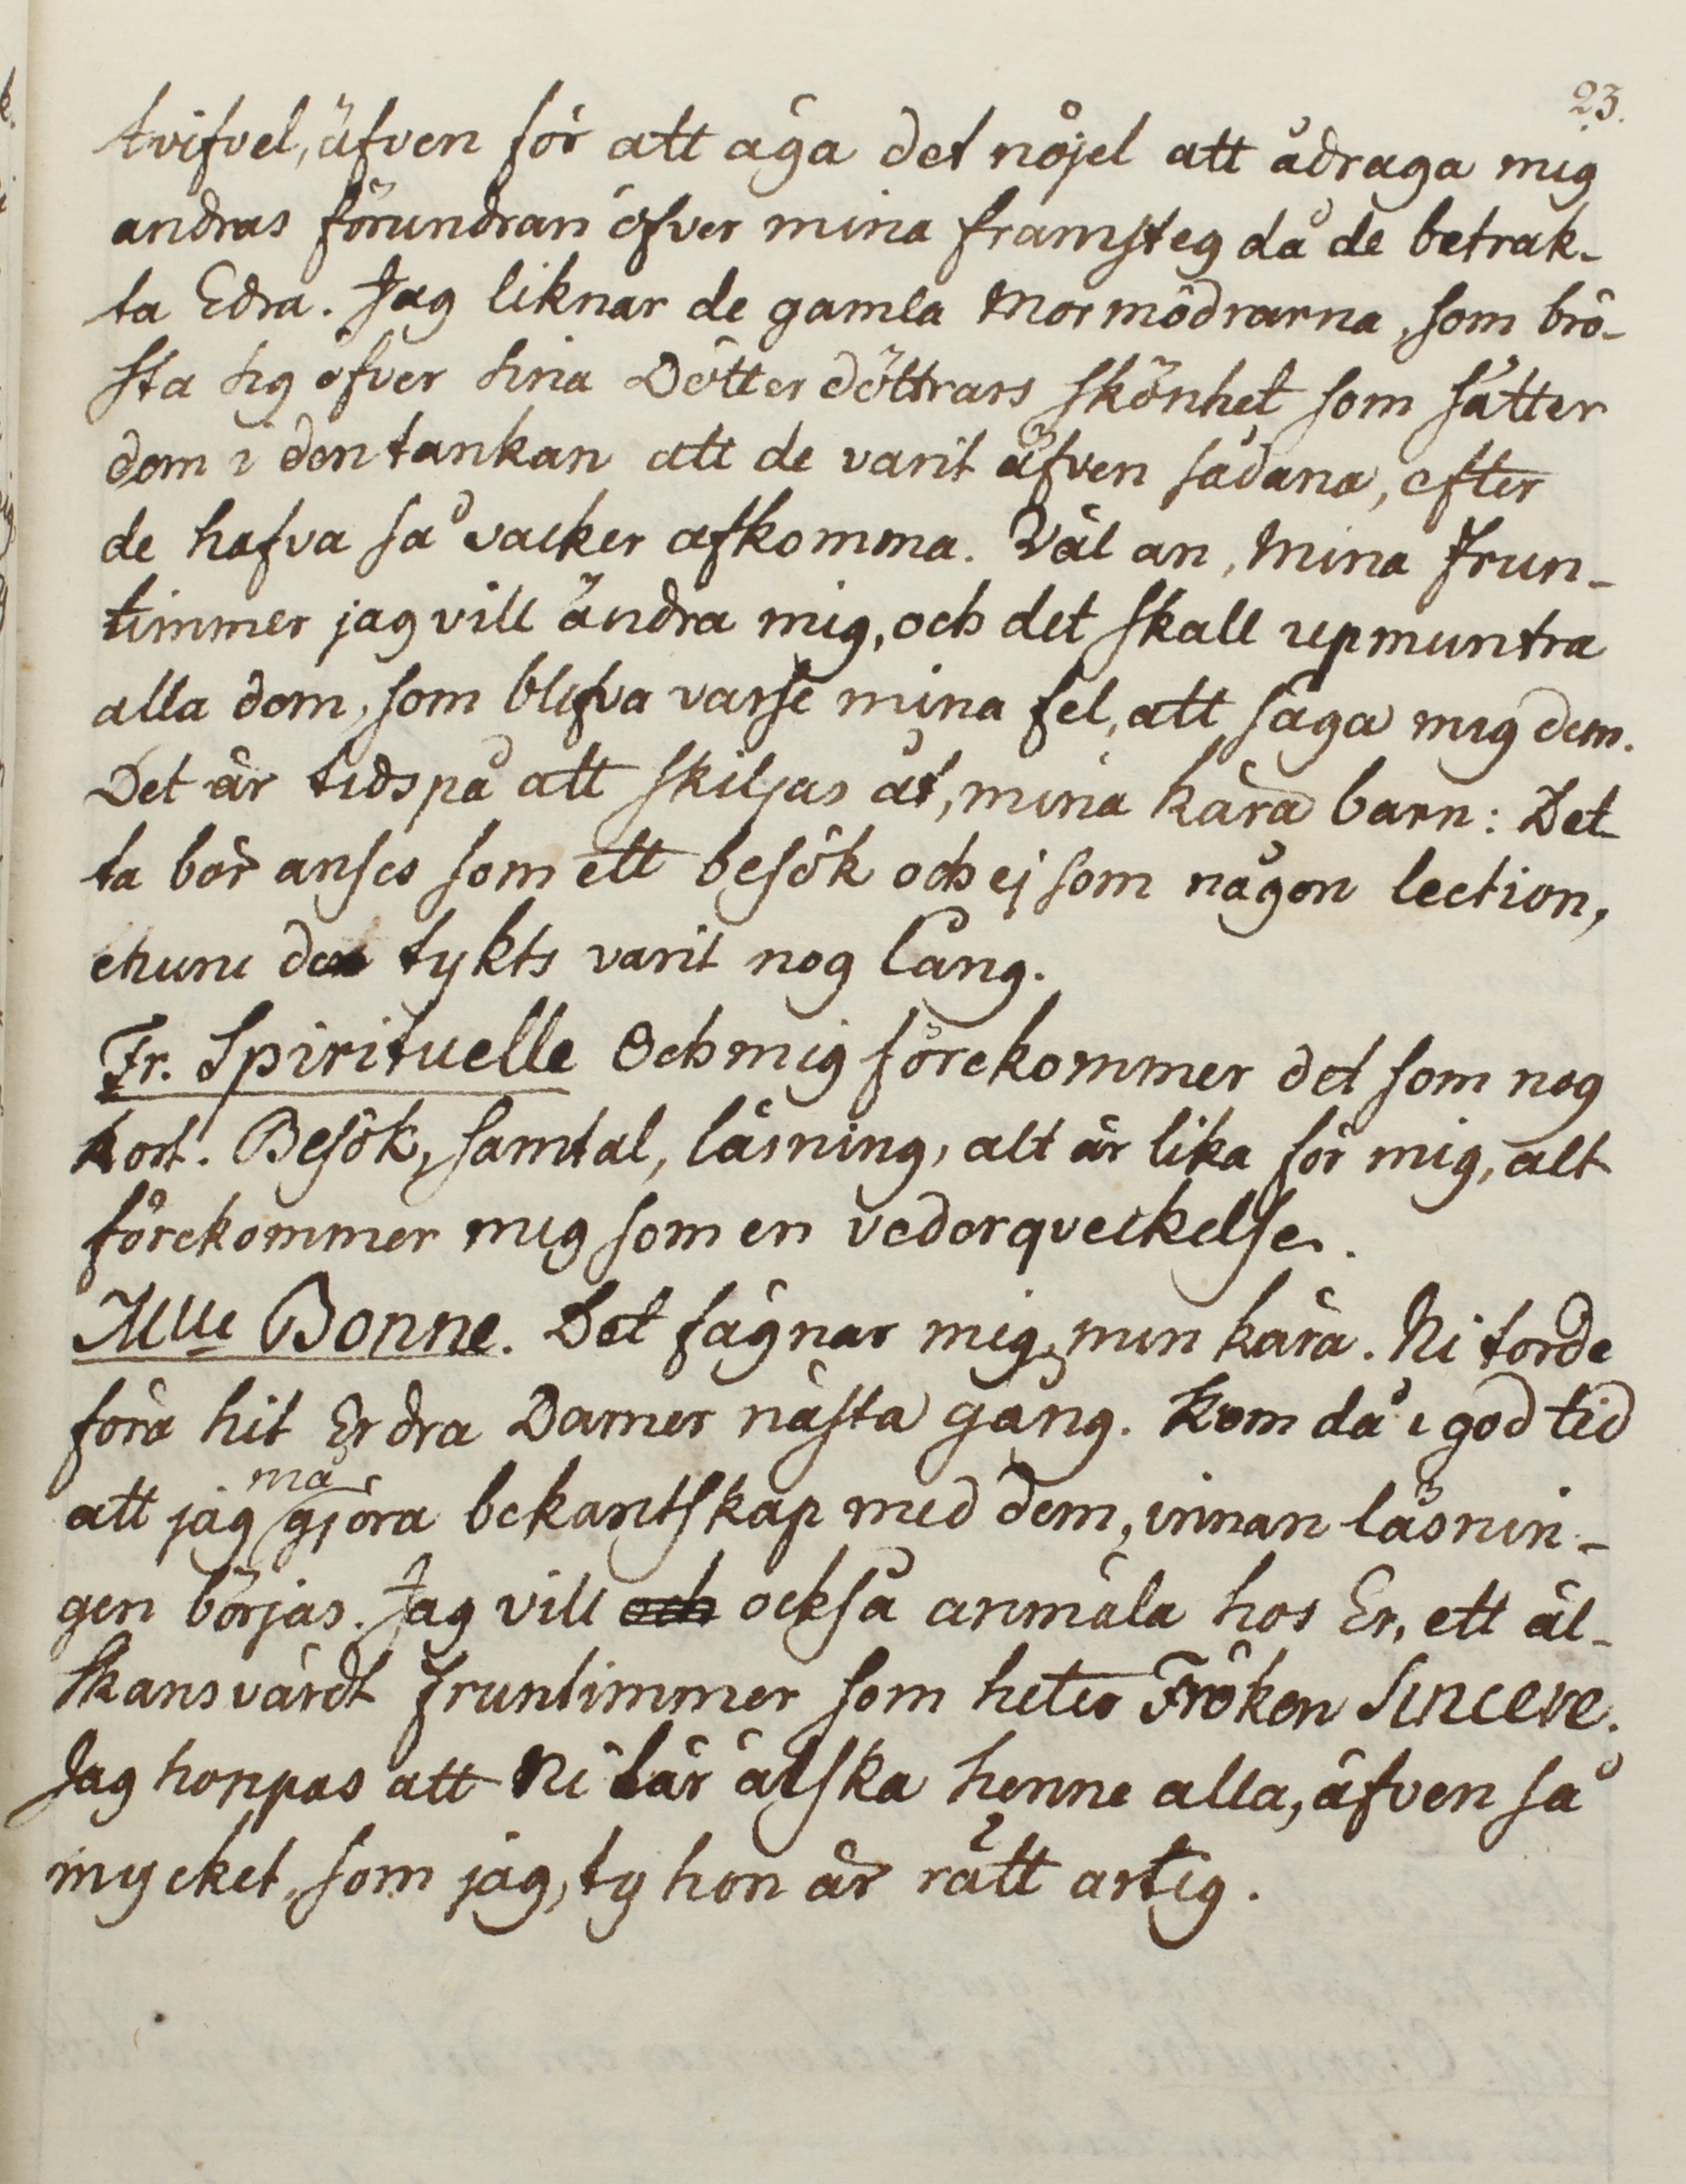 23.
tvifvel, äfven för att äga det nöjet att ådraga mig
andras förundran öfver mina framsteg då de betrak-
ta Edra. Jag liknar de gamla Mormödrarna, som brö-
sta sig öfver sina Dötterdöttrars skönhet som sätter
dom i den tankan att de varit äfven sådana, efter
de hafva så vacker afkomma. Väl an, Mina Frun-
timmer jag vill ändra mig, och det skall upmuntra
alla dom, som blifva varse mina fel, att säga mig dem.
Det är tids på att skiljas åt, mina kära barn: Det
ta bör anses som ett besök och ej som någon lection,
ehuru den tykts varit nog lång.
Fr. Spirituelle Och mig förekommer det som nog
kort. Besök, samtal, läsning, alt är lika för mig, alt
förekommer mig som en vederqveckelse.
Mlle Bonne. Det fägnar mig, min kära. Ni torde
föra hit Erdra Damer nästa gång. Kom då i god tid
att jag må gjöra bekantskap med dem, innan läsnin-
gen börjas. Jag vill och också anmäla hos Er, ett äl-
skansvärdt fruntimmer som heter Fröken Sincere.
Jag hoppas att Ni lär älska henne alla, äfven så
mycket, som jag, ty hon är rätt artig.